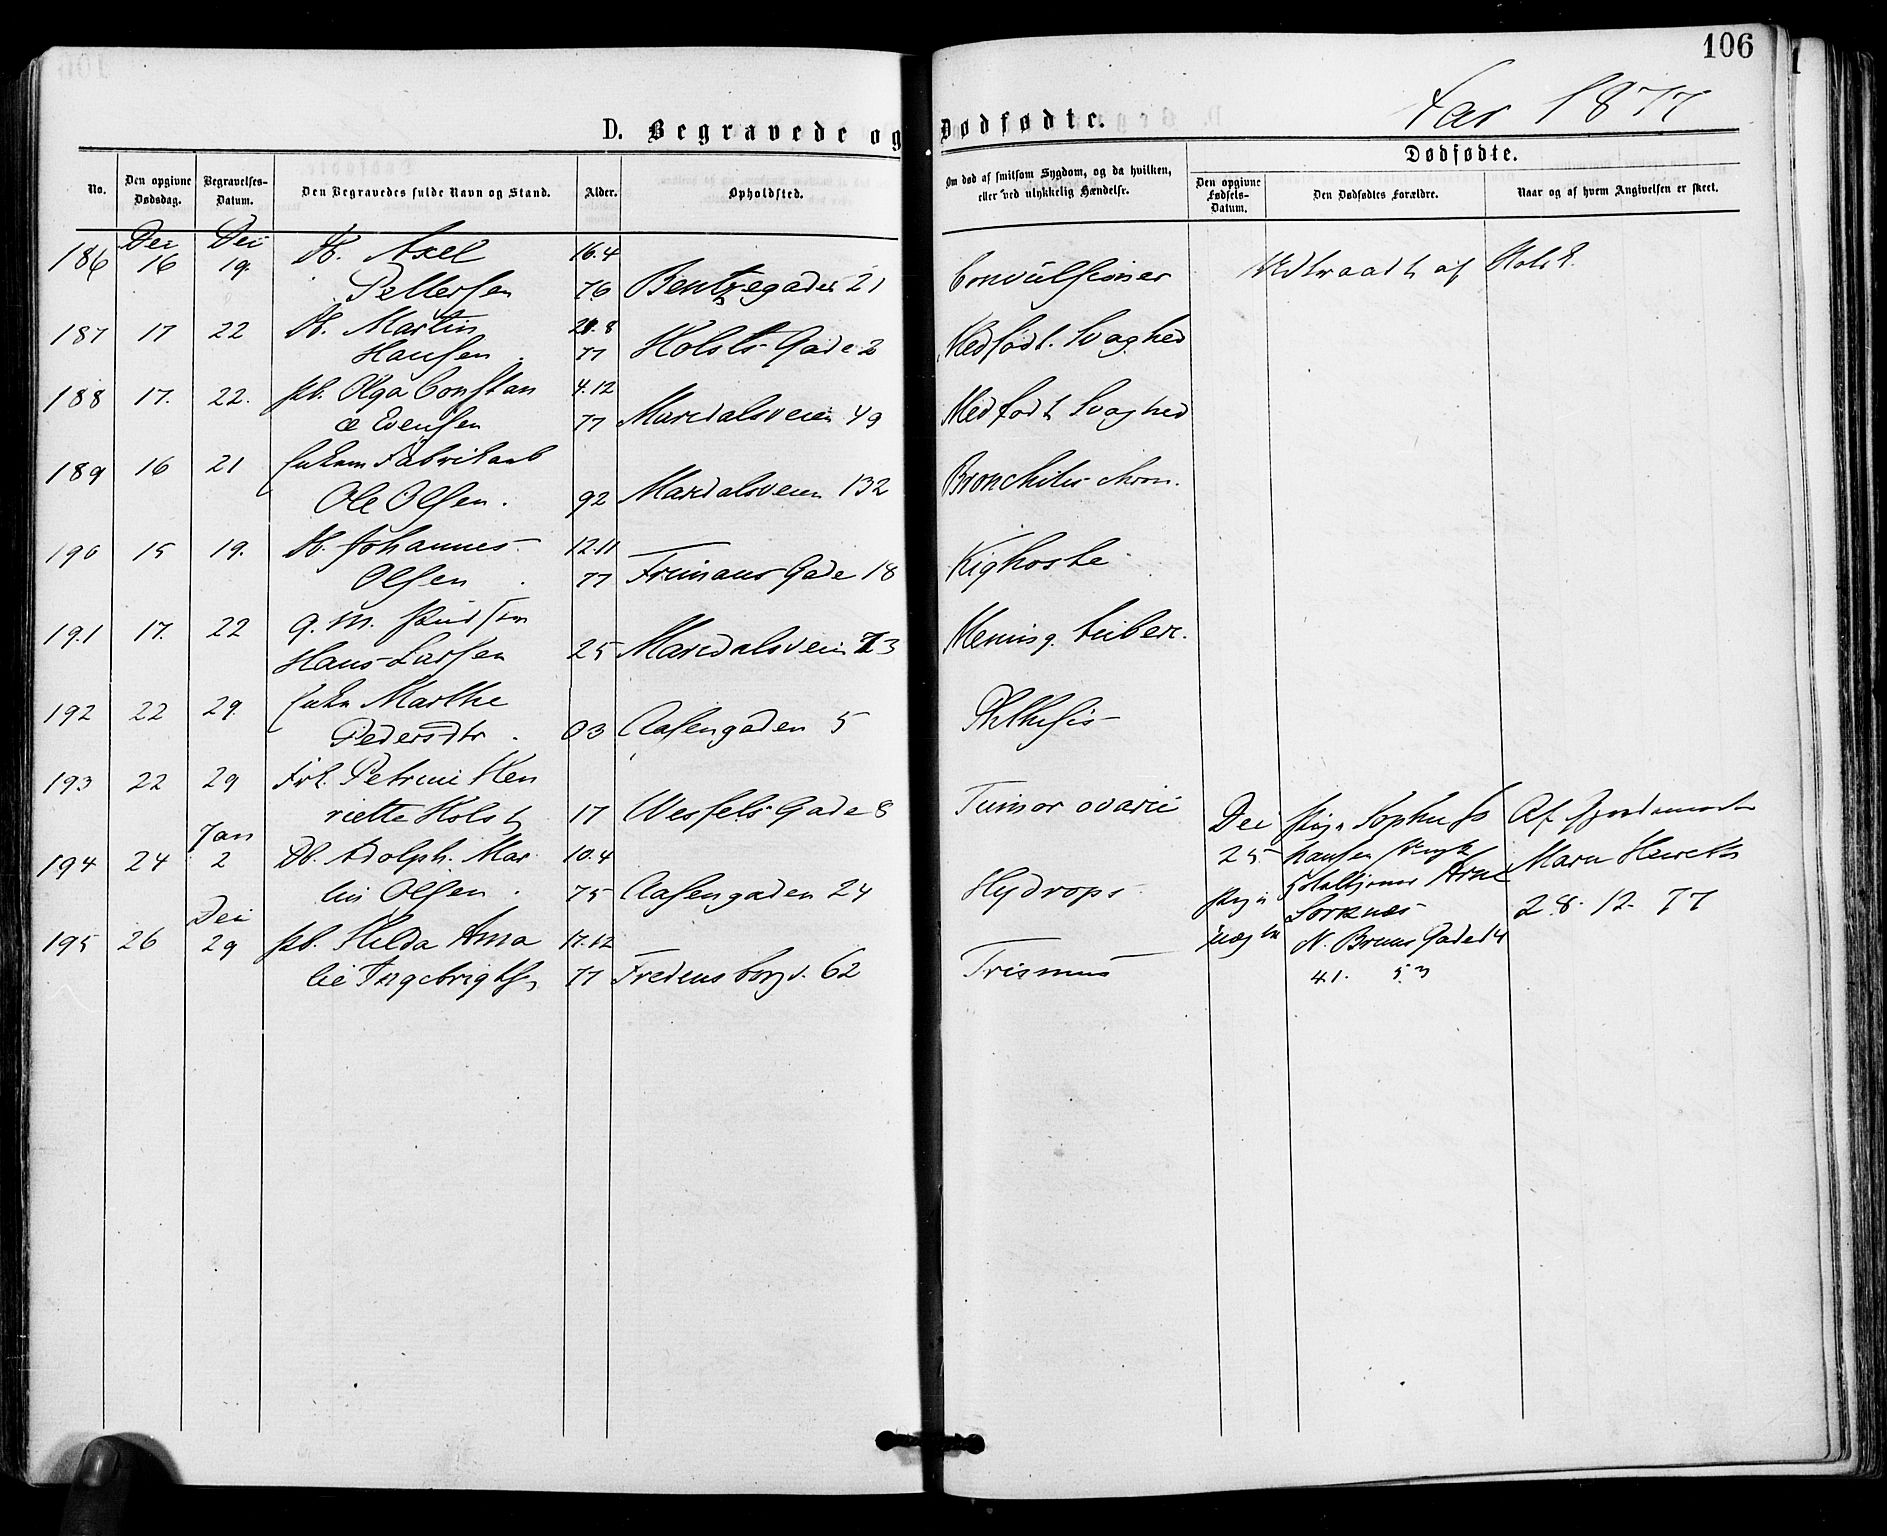 106
Aar 1877
D. Begravede og Dødfødte.
No.
Den opgivne Dødsdag.
Begravelses-Datum.
Den Begravedes fulde Navn og Stand.
Alder.
Opholdsted.
Om død af smitsom Sygdom, og da hvilken, eller ved ulykkelig Hændelse.
Dødfødte.
Den opgivne Fødsels-Datum.
Den Dødfødtes Forældre.
Naar og af hvem Angivelsen er skeet.
Dec Dec
186 16 19. Db. Axel 16.4
Pettersen 76 Bentzegaden 21 Convulsioner
187 17 22 Db. Martin 21.8
Hansen. 77 Holsts Gade 2 Medfødt. Svaghed
188 17. 22. pb. Olga Constan 4.12
ce Evensen 77 Maridalsveien 49 Medfødt Svaghed
189 16 21 Enkem Fabrikarb
Ole Olsen. 92 Maridalsveien 132 Bronchitis chron.
190 15 19. Db. Johannes 12.11
Olsen. 77 Frimans Gade 18 Kighoste
191 17. 22 g. M.
Hans Larsen 25 Maridalsveien 73 Mening. tuberc.
192 22 29. Enke Marthe
Pedersdtr. 03 Aasengaden 5 Phthisis
193 22 29 Frk. Petrine Hen
riette Holst 17 Wessels Gade 8 Tumor ovarii
Jan
194 24 2 Db. Adolph. Mar 10.4
tin Olsen. 75 Aasengaden 24 Hydrops
Dec
195 26 29 pb. Hilda Ama 17.12
lie Ingebrigtsen 77 Fredensborgv. 62 Trismus
Dec Pige Sophus Af Jordemoder
25 Hansen Maren
Pige Sorknæs 28. 12. 77
uægte N. Bruns Gade 14
41.